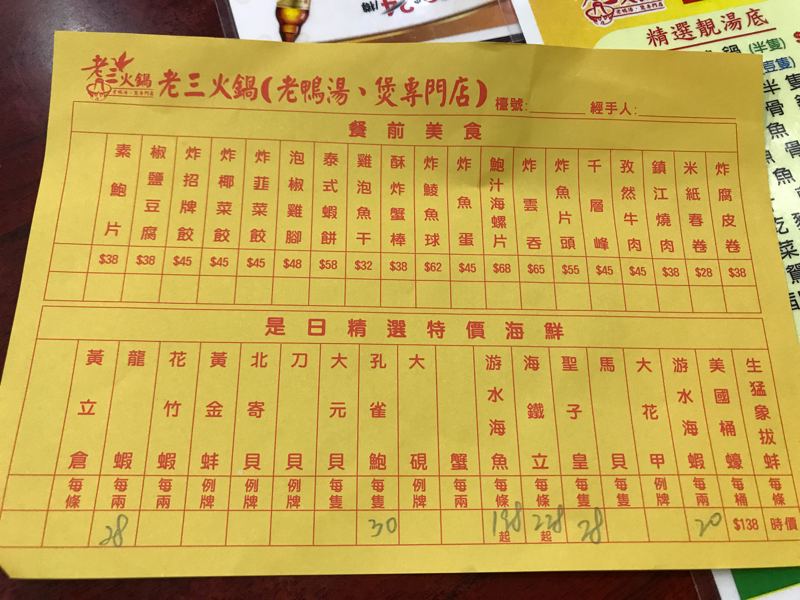 老三火鍋
老鴨湯、煲專門店
老三火鍋(老鴨湯、煲專門店)
檯號:
經手人:
餐前美食
素鮑片
椒鹽豆腐
炸招牌餃
炸椰菜餃
炸韮菜餃
泡椒雞腳
泰式蝦餅
雞泡魚干
酥炸蟹棒
炸鯪魚球
炸魚蛋
鮑汁海螺片
炸雲吞
炸魚片頭
千層峰
孜然牛肉
鎮江燒肉
米紙春卷
炸腐皮卷
$38 $38 $45 $45 $45 $48 $58 $32 $38 $62 $45 $68 $65 $55 $45 $45 $38 $28 $38
是日精選特價海鮮
黃立倉
龍蝦
花竹蝦
黃金蚌
北寄貝
刀貝
大元貝
孔雀鮑
大硯
蟹
游水海魚
海鐵立
聖子皇
馬貝
大花甲
游水海蝦
美國桶蠔
生猛象拔蚌
每條 每兩 每兩 例牌 例牌 例牌 每隻 每隻 例牌 每兩 每條 每條 每隻 每隻 例牌 每兩 每桶 每條
28 30 198起 228起 28 20 $138 時價
精選靚湯底
鍋(半隻)